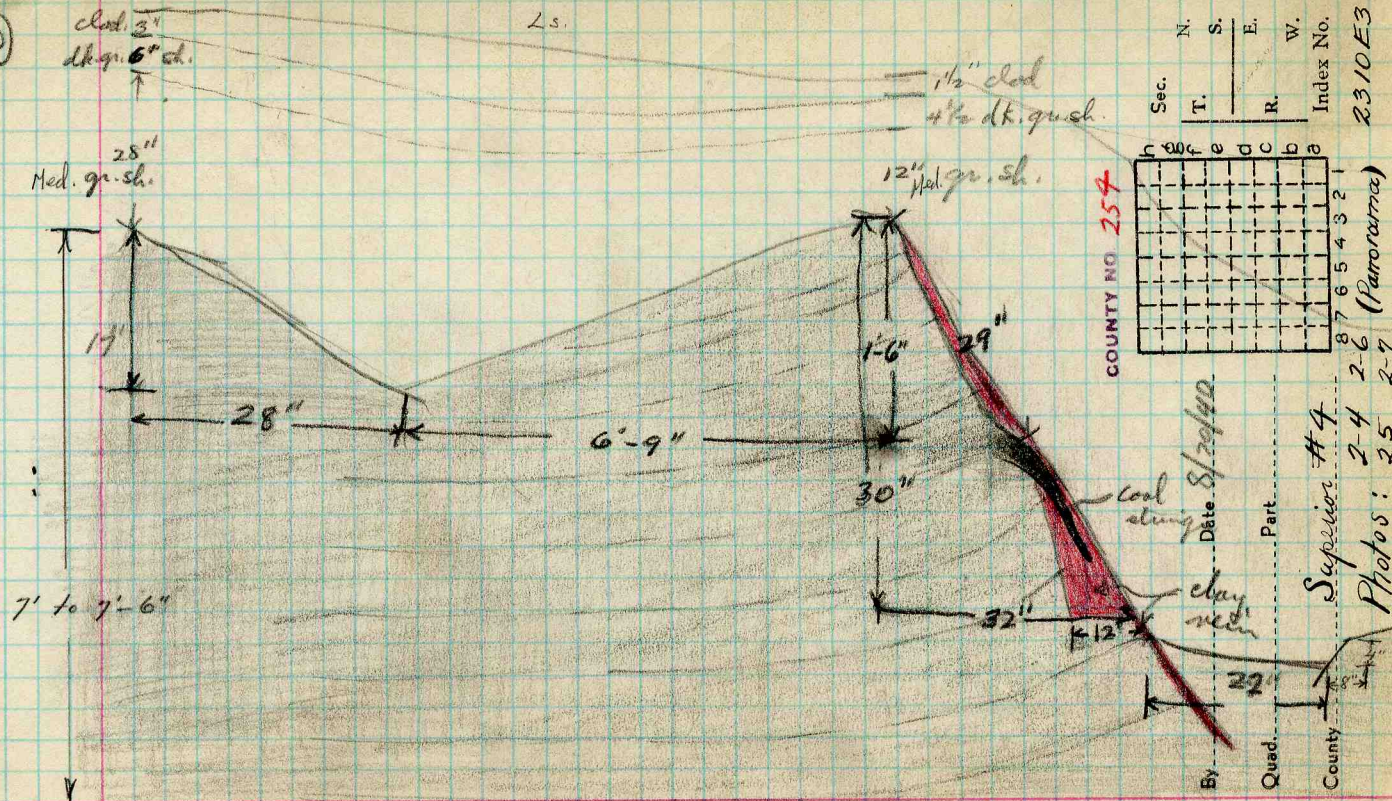 clod. 3"
dk. gr. 6" sh.
Ls.
1 1/2" clod
4 1/2 dk. gr. sh.
28"
Med. gr. sh.
12" Med. gr. sh.
17"
28"
6'-9"
1'-6"
29"
30"
coal
string
7' to 7'-6"
32"
12"
clay
vein
22"
8"
Sec.
T. N.
S.
R. E.
W.
Index No.
2310E3
h
g
f
e
d
c
b
a
8 7 6 5 4 3 2 1
COUNTY NO 254
Date 8/20/42
Part
By
Quad.
County
Superior #4
Photos: 2-4 2-6 (Panorama)
2-5 2-7